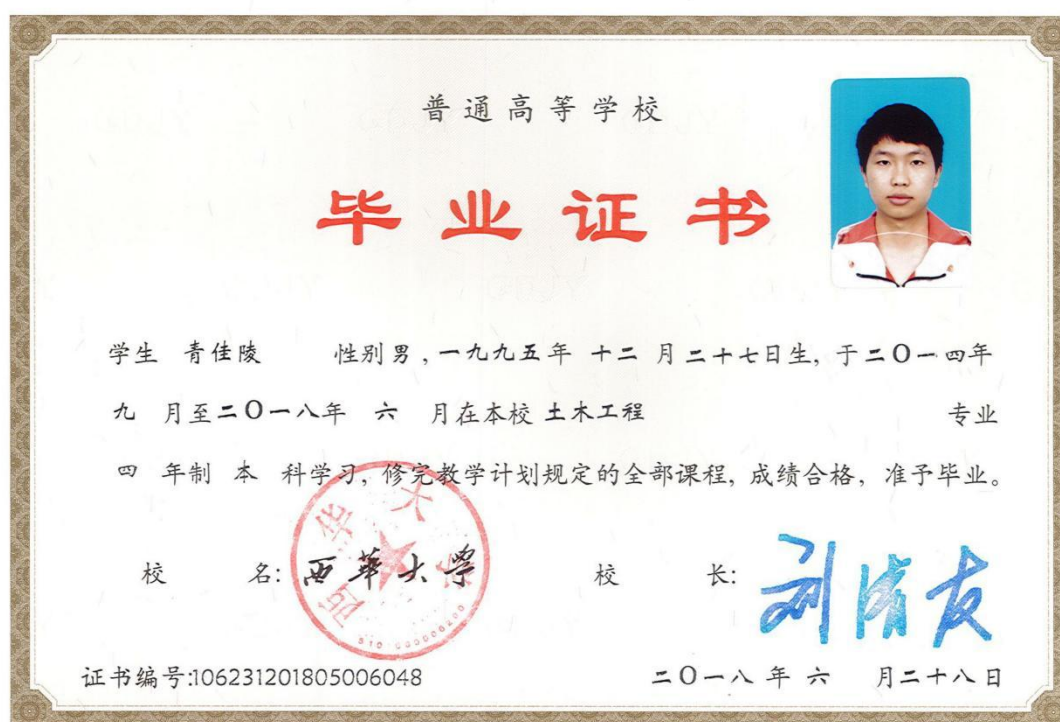 普通高等学校
毕业证书
学生 青佳陵 性别男,一九九五年 十二 月二十七日生,于二〇一四年
九 月至二〇一八年 六 月在本校 土木工程 专业
四 年制 本 科学习,修完教学计划规定的全部课程,成绩合格,准予毕业。
校 名:西華大学 校 长:刘清友
西华大学
证书编号:106231201805006048 二〇一八年 六 月二十八日